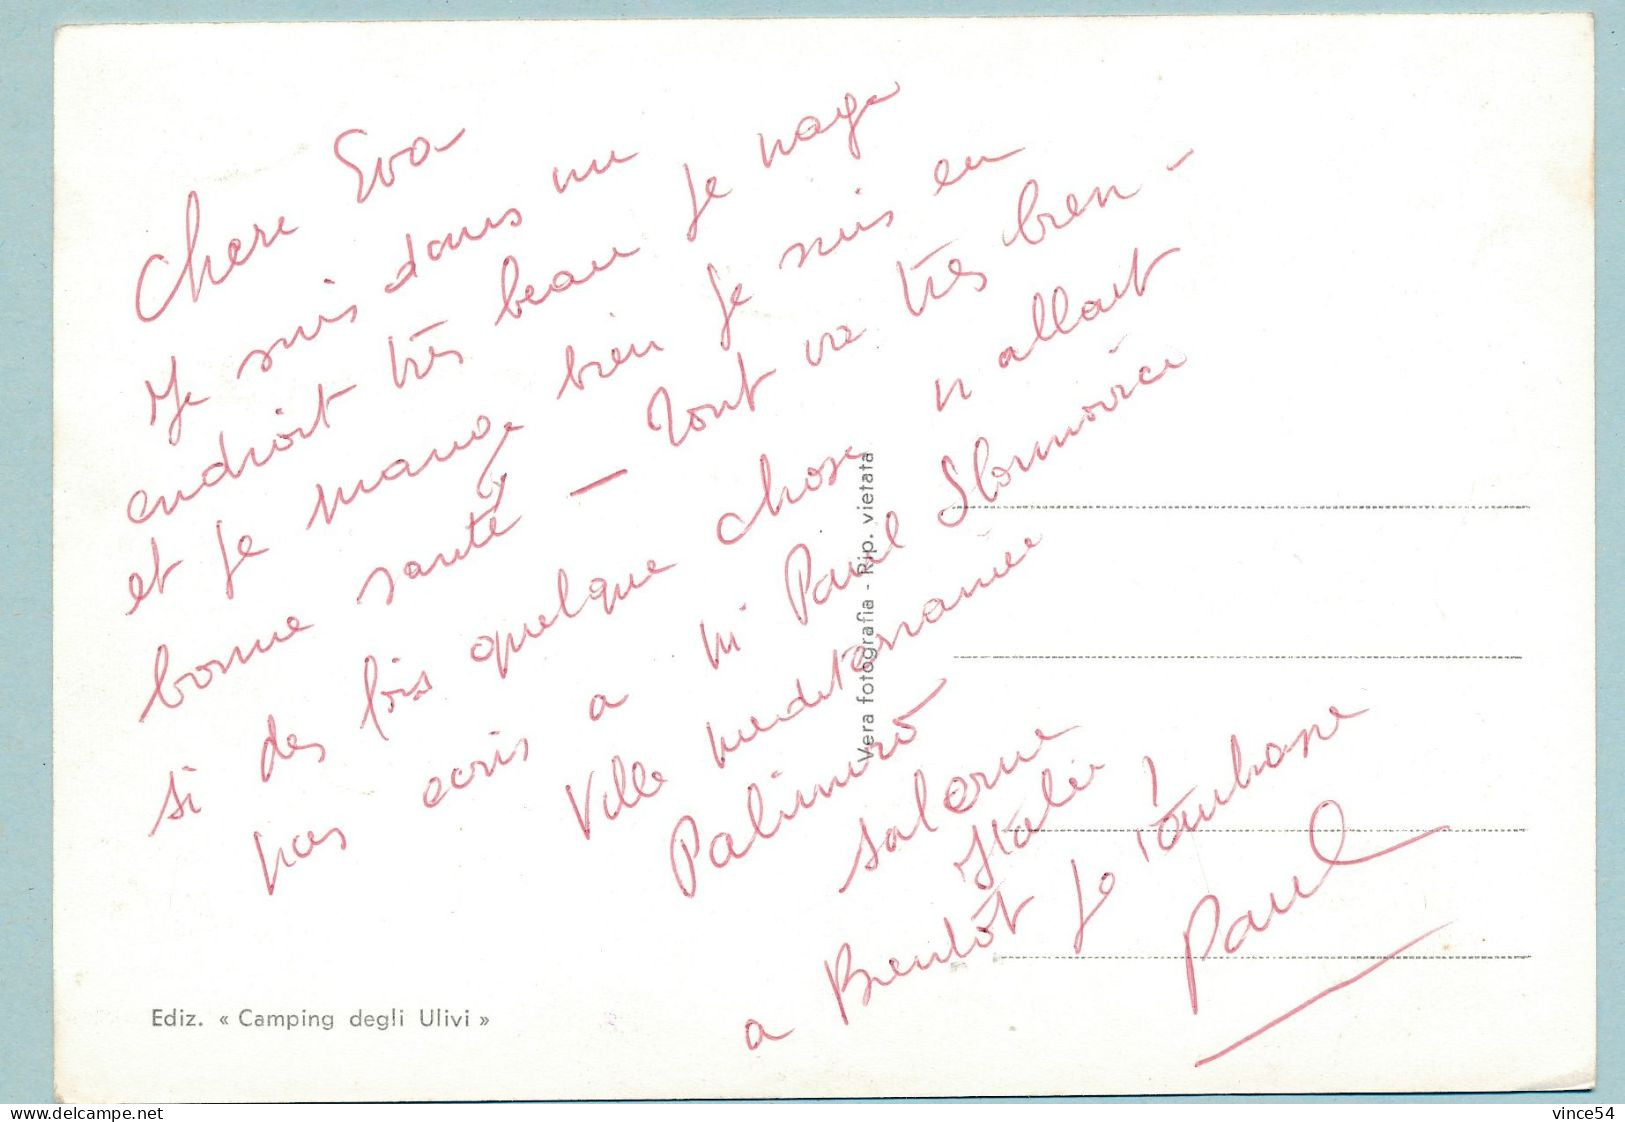 Chere Eva
Je suis dans un
endroit très beau je nage
et je mange bien je suis en
bonne santé — Tout va très bien —
si des fois quelque chose n allait
pas ecris a Mr Paul
Ville mediterranée
Palinuro
Salerne
Italie
a Bientôt je t'embrasse
Paul
Vera fotografia - Rip. vietata
Ediz. « Camping degli Ulivi »
delcampe.net
vince54